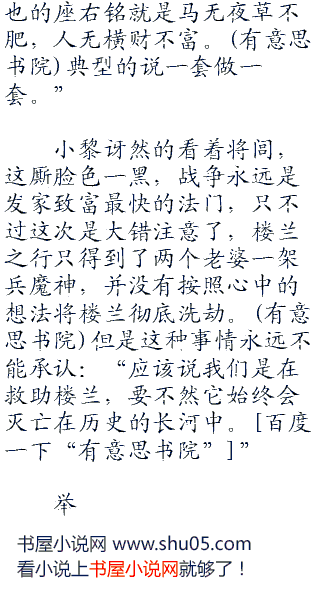 也的座右铭就是马无夜草不
肥，人无横财不富。(有意思
书院)典型的说一套做一
套。”
小黎讶然的看着将闾，
这厮脸色一黑，战争永远是
发家致富最快的法门，只不
过这次是大错注意了，楼兰
之行只得到了两个老婆一架
兵魔神，并没有按照心中的
想法将楼兰彻底洗劫。(有意
思书院)但是这种事情永远不
能承认：“应该说我们是在
救助楼兰，要不然它始终会
灭亡在历史的长河中。[百度
一下“有意思书院”]”
举
书屋小说网 www.shu05.com
看小说上书屋小说网就够了！